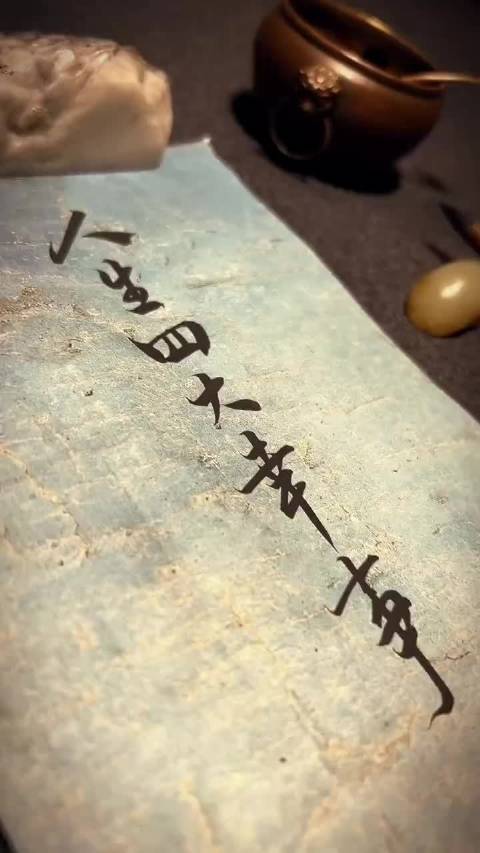 人生四大幸事